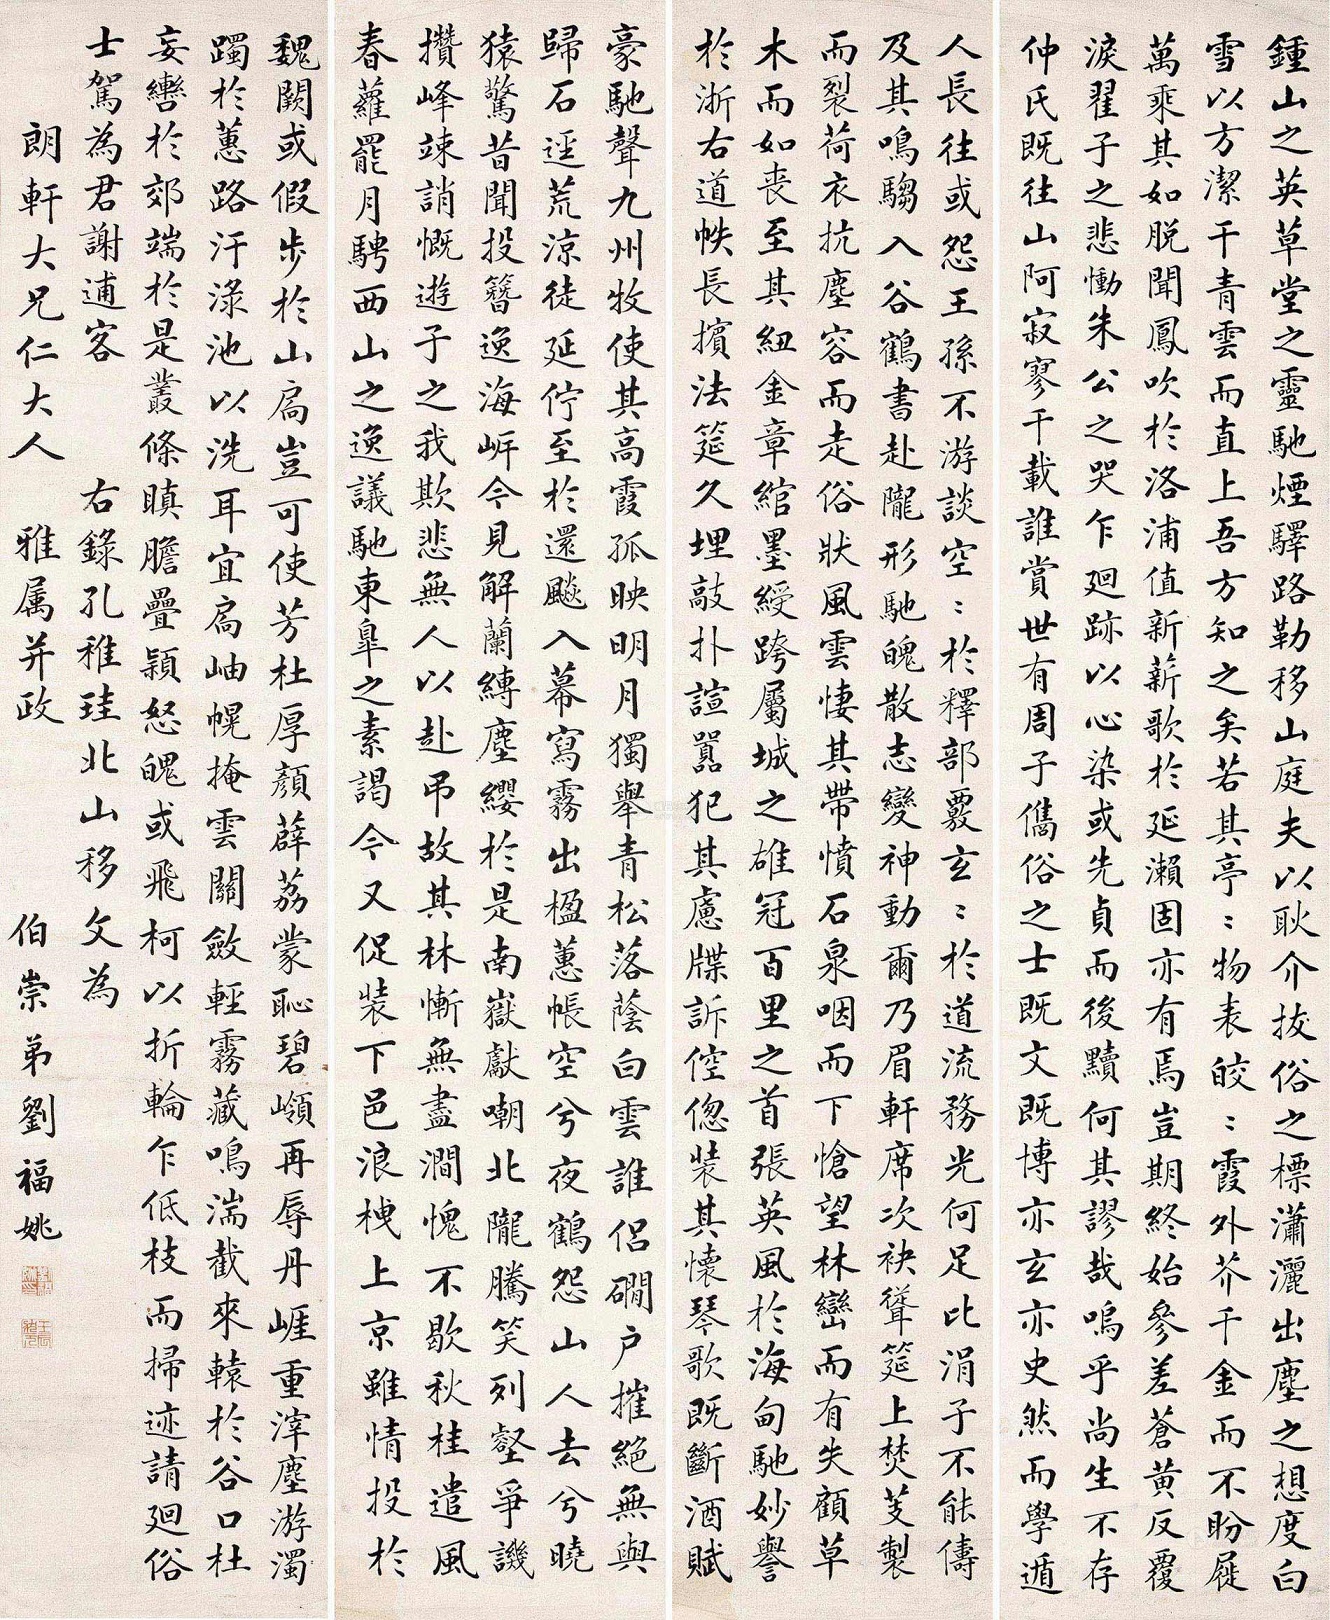 鍾山之英草堂之靈馳煙驛路勒移山庭夫以耿介拔俗之標瀟灑出塵之想度白
雪以方潔干青雲而直上吾方知之矣若其亭〻物表皎〻霞外芥千金而不盼屣
萬乘其如脫聞鳳吹於洛浦值新薪歌於延瀨固亦有焉豈期終始參差蒼黃反覆
淚翟子之悲慟朱公之哭乍廻跡以心染或先貞而後黷何其謬哉嗚乎尚生不存
仲氏既往山阿寂寥千載誰賞世有周子儁俗之士既文既博亦玄亦史然而學遁
人長往或怨王孫不游談空〻於釋部覈玄〻於道流務光何足比涓子不能儔
及其鳴騶入谷鶴書赴隴形馳魄散志變神動爾乃眉軒席次袂聳筵上焚芰製
而裂荷衣抗塵容而走俗狀風雲悽其帶憤石泉咽而下愴望林巒而有失顧草
木而如喪至其紐金章綰墨綬跨屬城之雄冠百里之首張英風於海甸馳妙譽
於浙右道帙長擯法筵久埋敲扑諠囂犯其慮牒訴倥傯裝其懷琴歌既斷酒賦
豪馳聲九州牧使其高霞孤映明月獨舉青松落蔭白雲誰侶磵户摧絕無與
歸石逕荒涼徒延佇至於還飈入幕寫霧出楹蕙帳空兮夜鶴怨山人去兮曉
猿驚昔聞投簪逸海岍今見解蘭縛塵纓於是南嶽獻嘲北隴騰笑列壑爭譏
攢峰竦誚慨遊子之我欺悲無人以赴弔故其林慚無盡澗愧不歇秋桂遣風
春蘿罷月騁西山之逸議馳東皐之素謁今又促裝下邑浪栧上京雖情投於
魏闕或假步於山扃豈可使芳杜厚顏薜荔蒙恥碧嶺再辱丹崕重滓塵游濁
躅於蕙路汙淥池以洗耳宜扃岫幌掩雲關斂輕霧藏鳴湍截來轅於谷口杜
妄轡於郊端於是叢條瞋膽疊穎怒魄或飛柯以折輪乍低枝而掃迹請廻俗
士駕為君謝逋客 右錄孔稚珪北山移文為
朗軒大兄仁大人 雅属并政 伯崇弟劉福姚